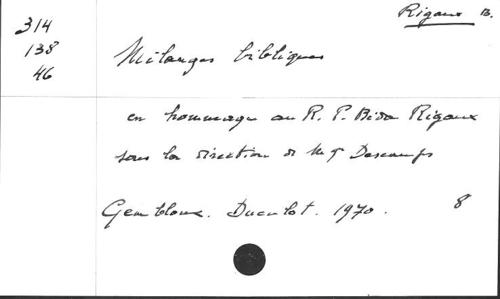 Rigaux B.
314
138
46
Mélanges bibliques
en hommage au R. P. Béda Rigaux
sous la direction de Mgr Descamps
Gembloux. Duculot. 1970. 8